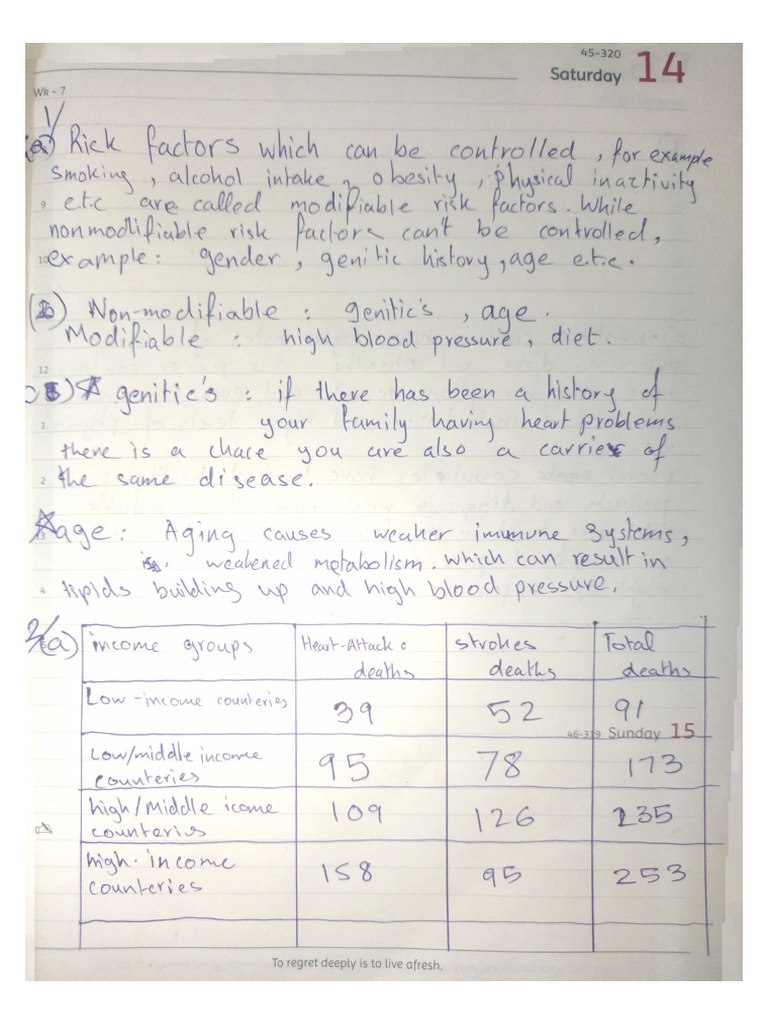 45-320
Saturday 14
WK - 7
1/
(a) Rick factors which can be controlled, for example
smoking, alcohol intake, obesity, physical inactivity
9 e.t.c are called modifiable risk factors. While
nonmodlifiable risk factors can't be controlled,
10 example: gender, genitic history, age e.t.c.
(b) Non-modifiable : genitic's, age.
Modifiable : high blood pressure, diet.
12
genitic's : if there has been a history of
1 your family having heart problems
there is a chace you are also a carrier of
2 the same disease.
age: Aging causes weaker immune systems,
weakened metabolism. which can result in
4 lipids building up and high blood pressure.
2/(a) income groups Heart-Attack deaths strokes deaths Total deaths
Low-income counteries 39 52 91
46-319 Sunday 15
Low/middle income counteries 95 78 173
high/Middle icome counteries 109 126 235
high-income counteries 158 95 253
To regret deeply is to live afresh.